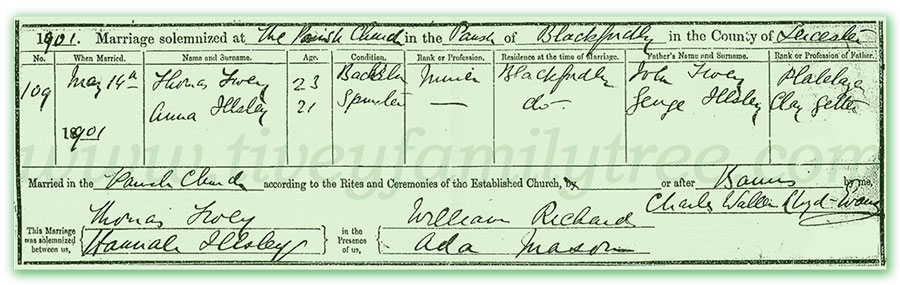 1901. Marriage solemnized at The Parish Church in the Parish of Blackfordby in the County of Leicester
No. When Married. Name and Surname. Age. Condition. Rank or Profession. Residence at the time of Marriage. Father's Name and Surname. Rank or Profession of Father.
109 May 14th Thomas Tivey 23 Bachelor Miner Blackfordby John Tivey Platelayer
Anna Illsley 21 Spinster — do- George Illsley Clay Getter
1901
www.tiveyfamilytree.com
Married in the Parish Church according to the Rites and Ceremonies of the Established Church, by or after Banns by me,
Charles Walter Lloyd-Evans
This Marriage was solemnized between us, Thomas Tivey in the Presence of us, William Richard
Hannah Illsley Ada Mason